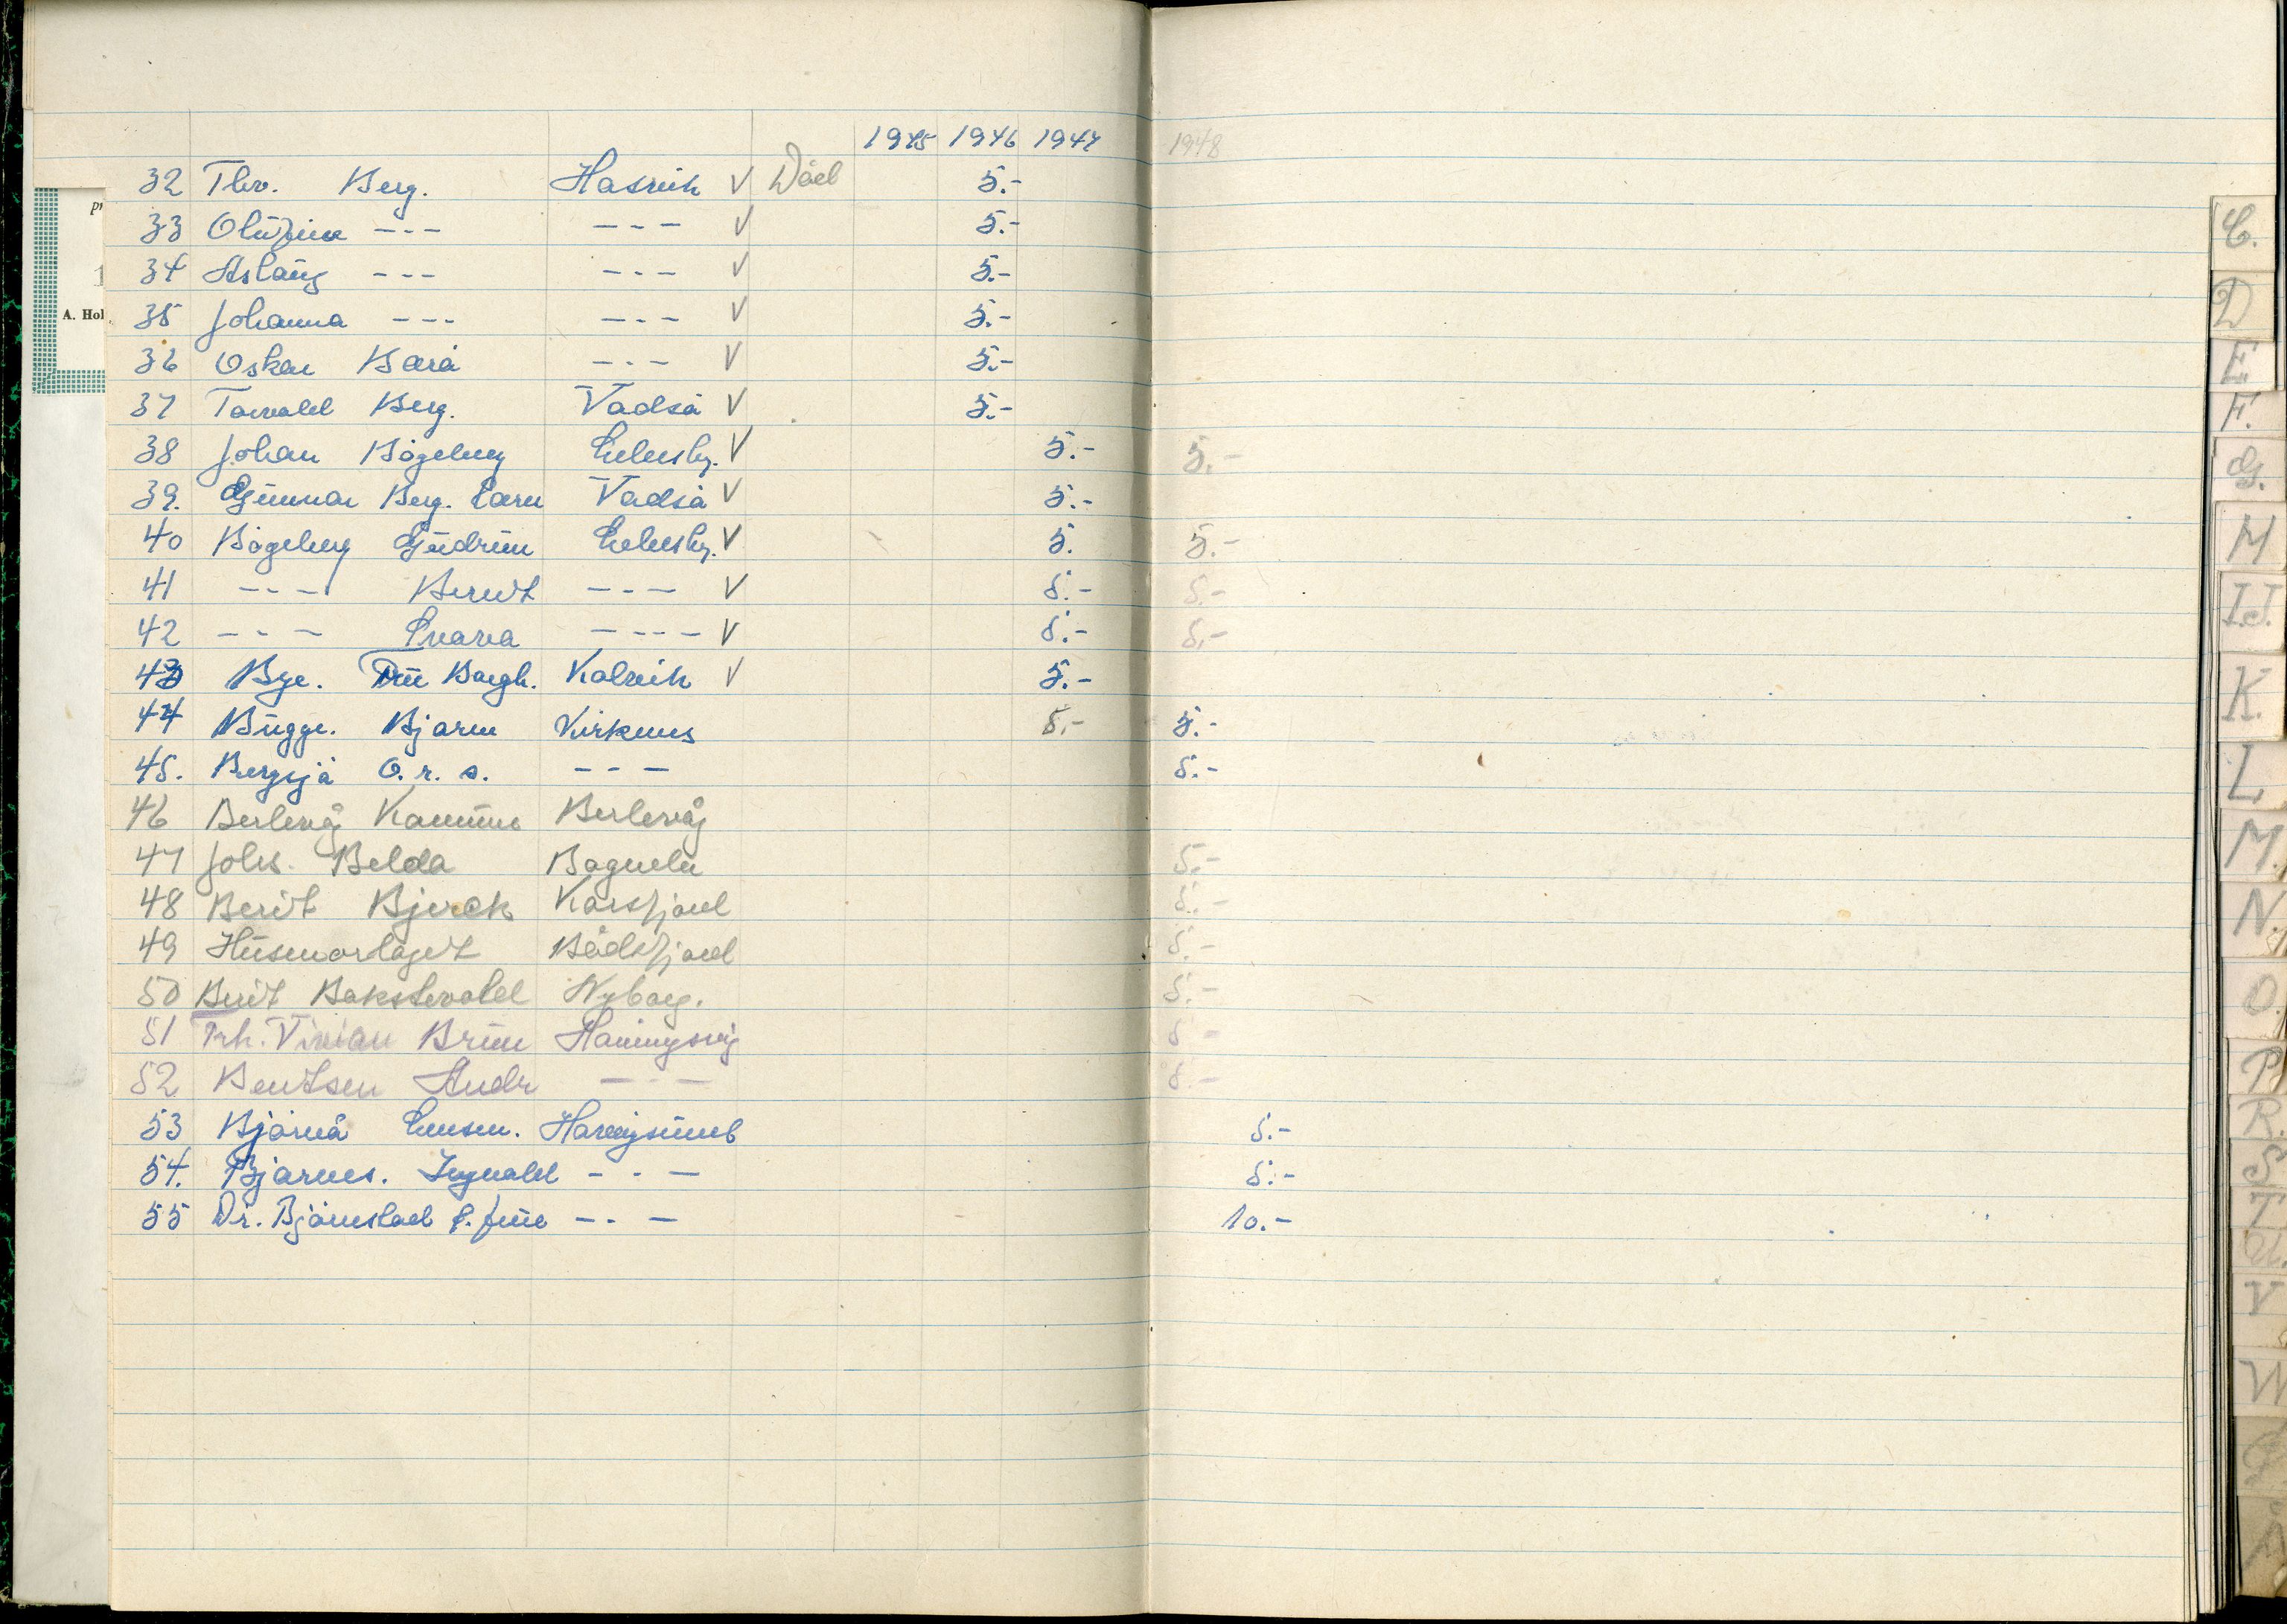 1945 1946 1947 1948
32 Thv. Berg. Hasvik V Död 5.-
33 Olufine --- --- V 5.-
34 Aslaug --- --- V 5.-
35 Johanna --- --- V 5.-
36 Oskar Bærø --- V 5.-
37 Torvald Berg. Vadsø V 5.-
38 Johan Bøgeberg V 5.- 5.-
39. Gunnar Berg. Vadsø V 5.-
40 Bøgeberg Gudrun V 5. 5.-
41 --- Berit --- V 5.- 5.-
42 --- ---- V 5.- 5.-
43 Bye. Kalvik V 5.-
44 Bugge. Bjarne Kirkenes 5.- 5.-
45. Bergsjø O.r.s. --- 5.-
46 Berlevåg Kommune Berlevåg
47 Johs. Belda 5.-
48 Berit Bjerck Korsfjord 5.-
49 Husmorlaget Båtsfjord 5.-
50 Berit Nyborg. 5.-
51 Frk. Vivian Brun Honningsvåg 5-
52 Bentsen Andr --- 5.-
53 Bjørnå 5.-
54. Bjarnes. Ingvald - - - 5.-
55 Dr. Bjørnstad & frue - - - 10.-
pr
1
A. Hol
C.
D
E.
F.
G.
H
I.J.
K.
L
M.
N.
O.
P
R.
S
T
U.
V
W
Ø
Å